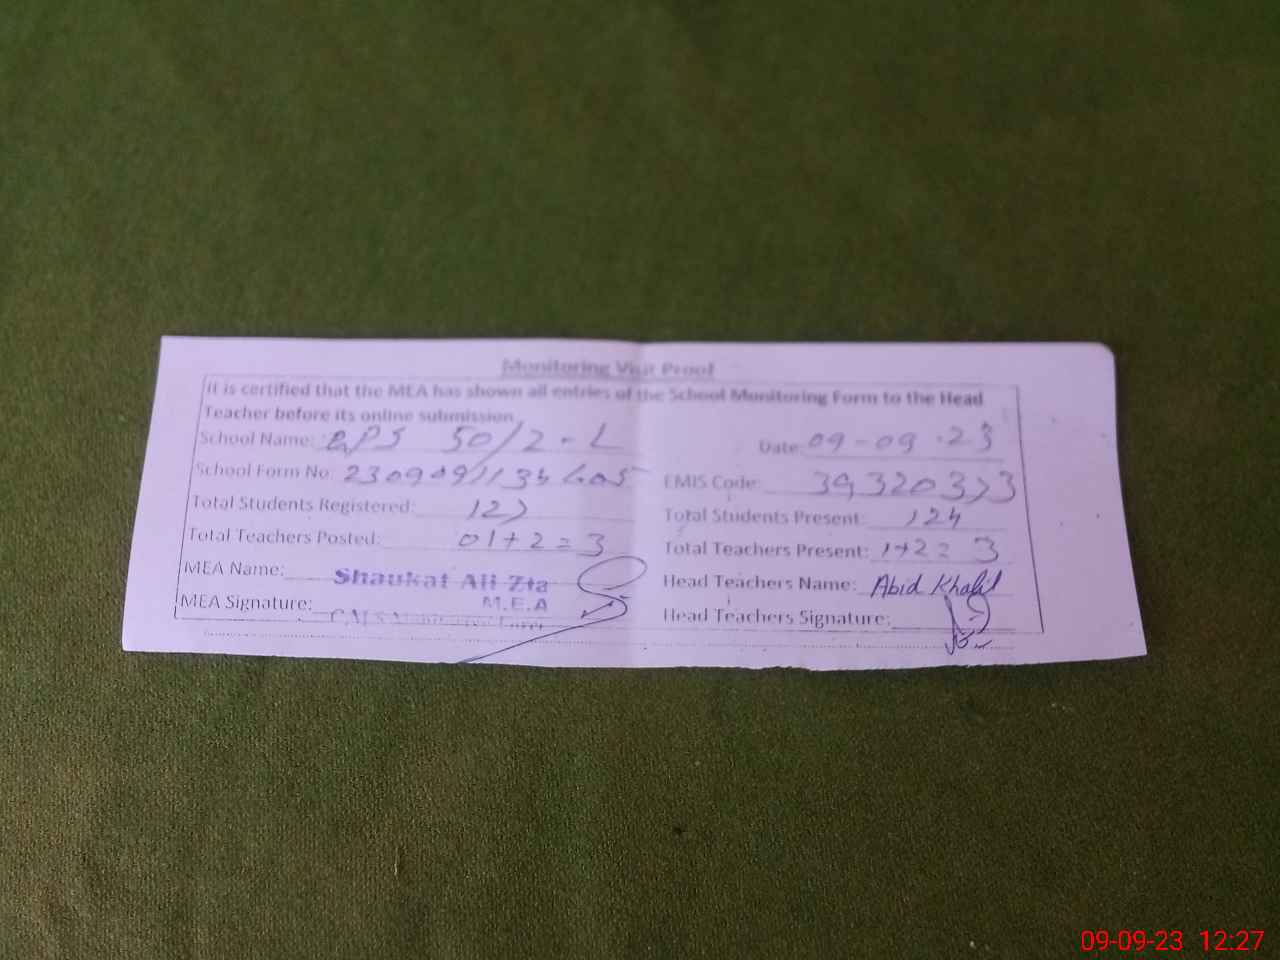 Monitoring Visit Proof
It is certified that the MEA has shown all entries of the School Monitoring Form to the Head
Teacher before its online submission
School Name: GPS 50/2-L Date: 09-09-23
School Form No: EMIS Code: 39320373
Total Students Registered: 127 Total Students Present: 124
Total Teachers Posted: 01+2=3 Total Teachers Present: 1+2=3
MEA Name: Shaukat Ali Zia Head Teachers Name: Abid Khalil
M.E.A
MEA Signature: Head Teachers Signature:
09-09-23 12:27